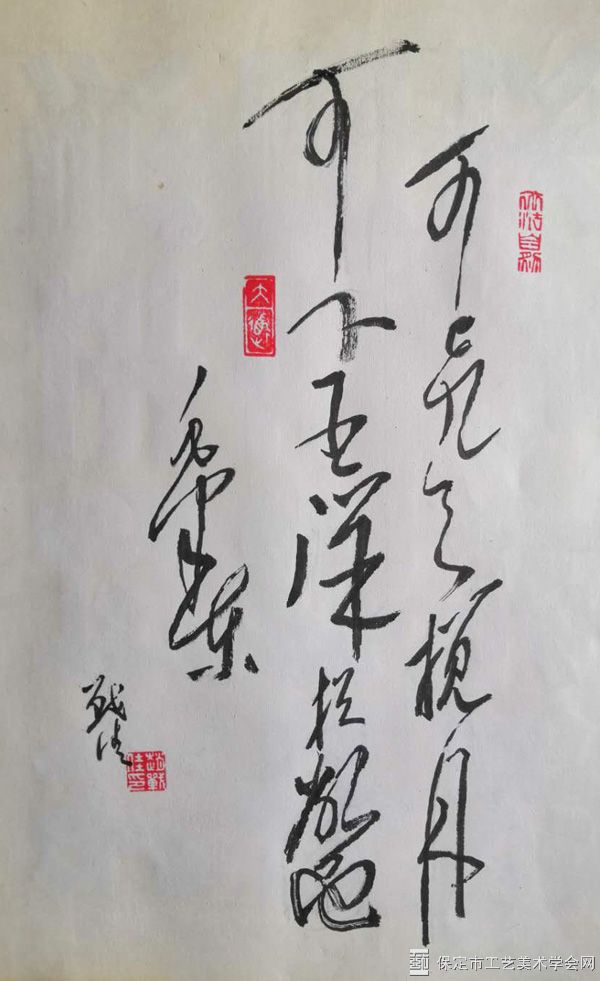 可上九天揽月
可下五洋捉鳖
毛泽东
战佳
赵战佳印
保定市工艺美术学会网